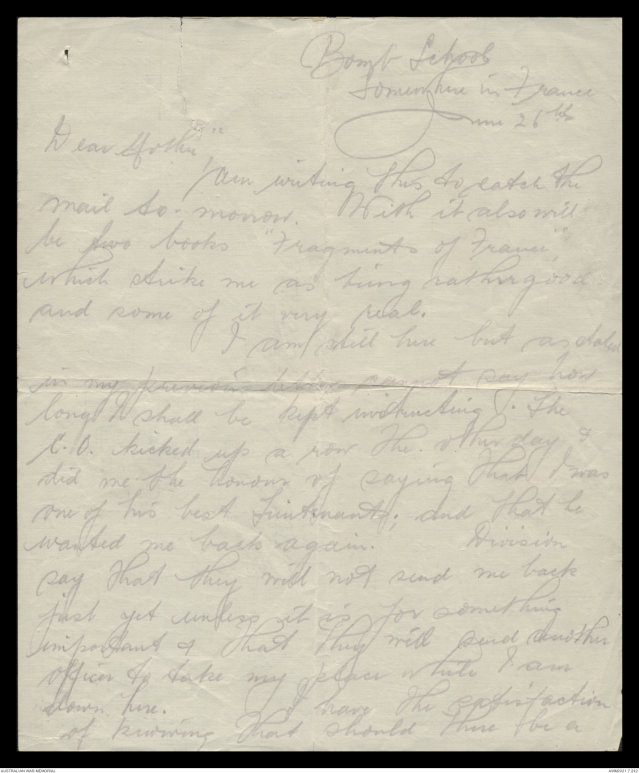 Bomb School
Somewhere in France
June 26th
Dear Mother,
I am writing this to catch the
mail to-morrow. With it also will
be two books "Fragments of France",
which strike me as being rather good
and some of it very real.
I am still here but as stated
in my previous letter cannot say how
long I shall be kept instructing. The
C.O. kicked up a row the other day &
did me the honour of saying that I was
one of his best Lieutenants, and that he
wanted me back again. Division
say that they will not send me back
just yet unless it is for something
important & that they will send another
officer to take my place while I am
down here. I have the satisfaction
of knowing that should there be a
AUSTRALIAN WAR MEMORIAL